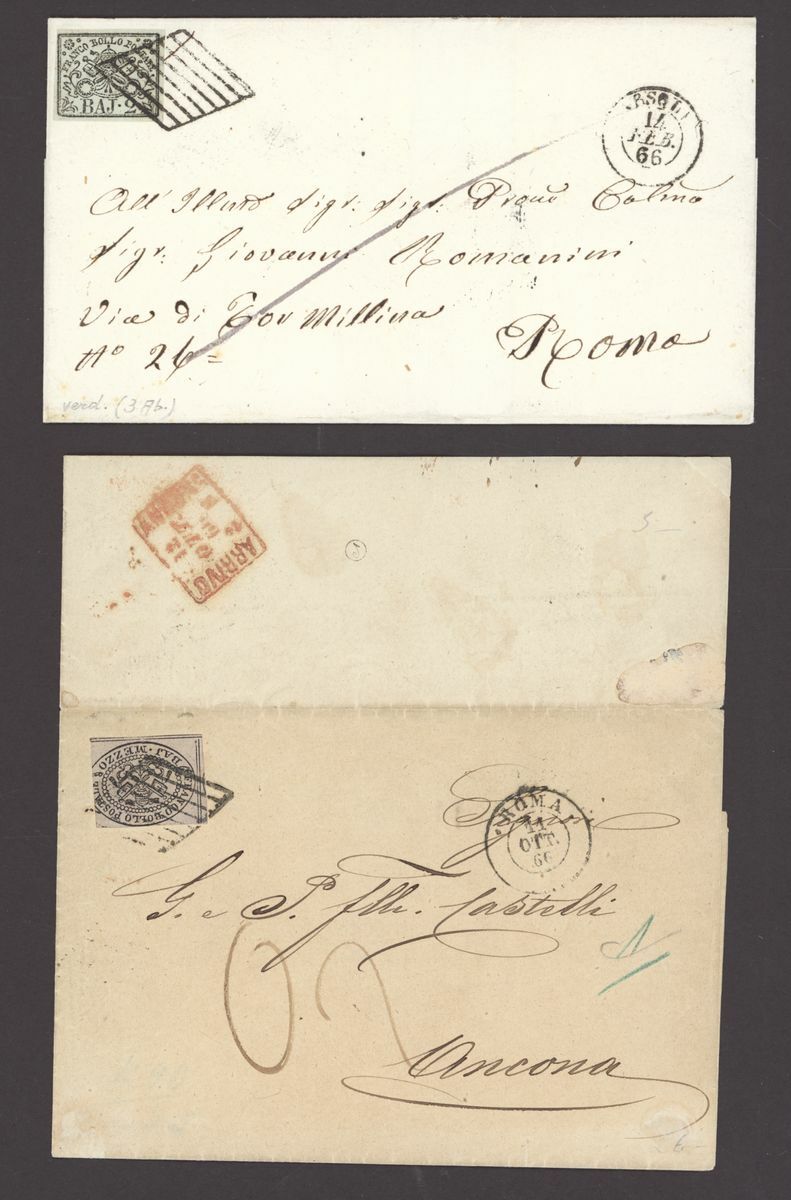 FRANCO BOLLO POSTALE
BAJ. 2
RSOLI
14
FEB.
66
All' Illmo Sigr. Sigr. Prone Colmo
Sigr. Giovanni Romanini
Via di Tor Millina
No 26 =
Roma
verd. (3 Ab.)
ARRIVO
12
OTT
66
5 -
BAJ. MEZZO
FRANCO BOLLO POSTALE
ROMA
11
OTT.
66
Signori
G. e P. flli. Castelli
02
Ancona